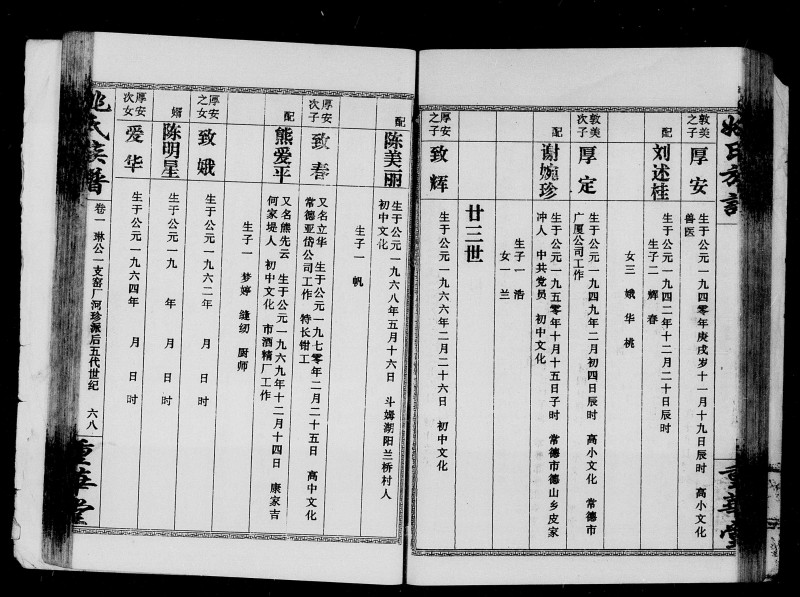 敦美之子
厚安
生于公元一九四零年庚戌岁十一月十九日辰时 高小文化
兽医
配
刘述桂
生于公元一九四二年十二月二十日辰时
生子二 辉 春
女三 娥 华 桃
敦美次子
厚定
生于公元一九四九年二月初四日辰时 高小文化 常德市
广厦公司工作
配
谢婉珍
生于公元一九五零年十月十五日子时 常德市德山乡皮家
冲人 中共党员 初中文化
生子一 浩
女一 兰
廿三世
厚安之子
致辉
生于公元一九六六年二月二十六日 初中文化
配
陈美丽
生于公元一九六八年五月十六日 斗姆湖阳兰桥村人
初中文化
生子一 帆
厚安次子
致春
又名立华 生于公元一九七零年二月二十五日 高中文化
常德亚岱公司工作 特长钳工
配
熊爱平
又名熊先云 生于公元一九六九年十二月十四日 康家吉
何家堤人 初中文化 市酒精厂工作
生子一 梦婷 缝纫 厨师
厚安之女
致娥
生于公元一九六二年 月 日时
婿
陈明星
生于公元一九 年 月 日时
厚安次女
爱华
生于公元一九六四年 月 日时
姚氏族谱
卷一 琳公一支窑厂河珍派后五代世纪 六八
重华堂